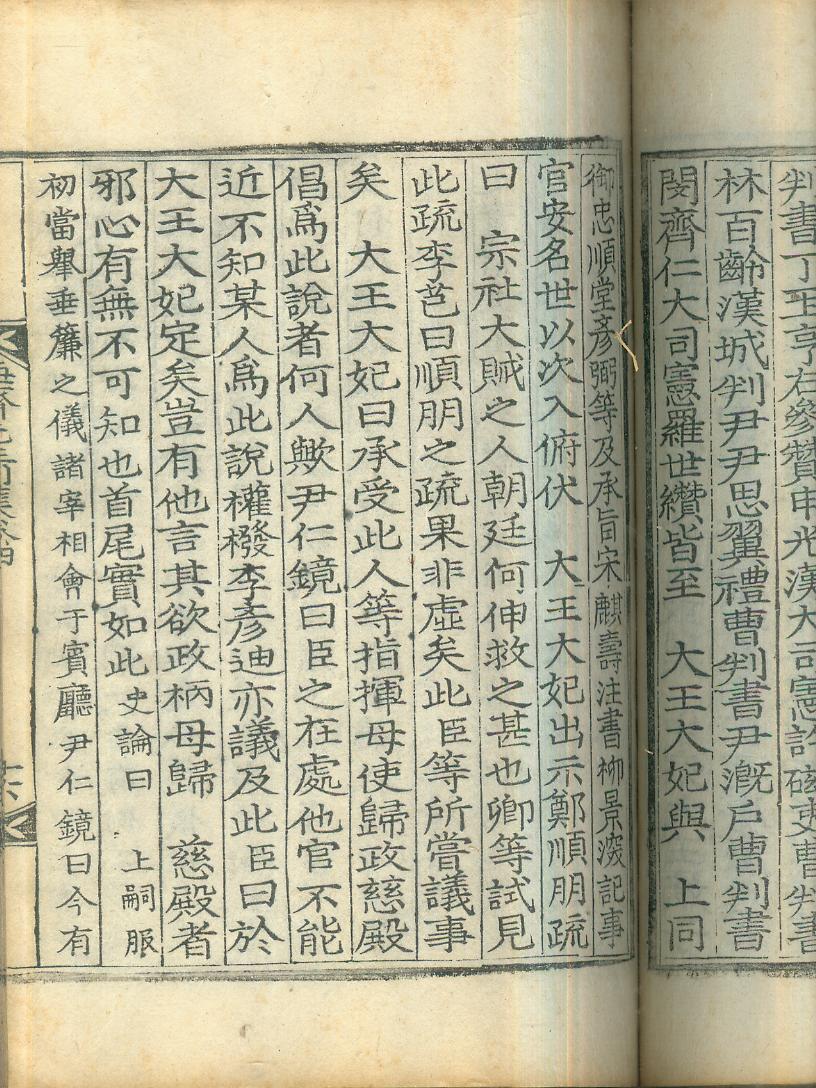 判書丁玉亨右參贊申光漢大司憲許磁吏曹判書
林百齡漢城判尹尹思翼禮曹判書尹漑戶曹判書
閔齊仁大司憲羅世纘皆至　大王大妃與　上同
御忠順堂彦弼等及承旨宋麒壽注書柳景深記事
官安名世以次入俯伏　大王大妃出示鄭順朋疏
曰　宗社大賊之人朝廷何伸救之甚也卿等試見
此疏李芑曰順朋之疏果非虛矣此臣等所嘗議事
矣　大王大妃曰承受此人等指揮毋使歸政慈殿
倡爲此說者何人歟尹仁鏡曰臣之在處他官不能
近不知某人爲此說權橃李彦迪亦議及此臣曰於
大王大妃定矣豈有他言其欲政柄毋歸　慈殿者
邪心有無不可知也首尾實如此史論曰　上嗣服
初當舉垂簾之儀諸宰相會于賓廳尹仁鏡曰今有
十六